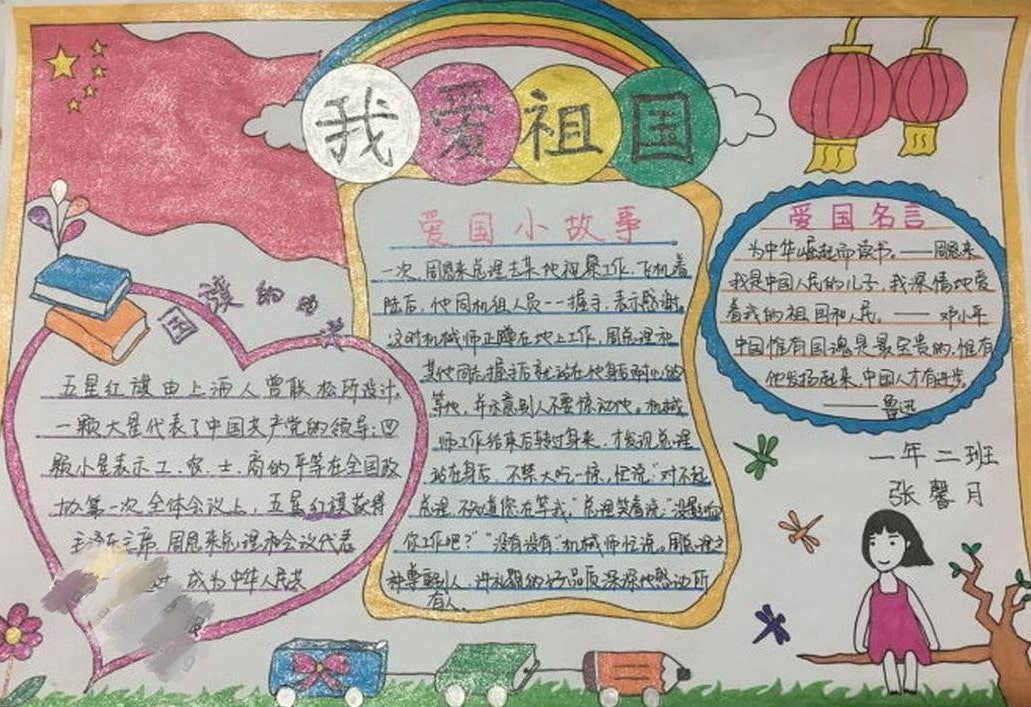 我爱祖国
国旗的
五星红旗由上海人曾联松所设计,
一颗大星代表了中国共产党的领导;四
颗小星表示工、农、士、商的平等在全国政
协第一次全体会议上,五星红旗获得
毛泽东主席、周恩来总理和会议代表
成为中华人民共
爱国小故事
一次,周恩来总理去某地视察工作,飞机着
陆后,他同机组人员一一握手,表示感谢。
这时机械师正蹲在地上工作,周总理和
其他同志握手后就站在他身后耐心的
等他,并示意别人不要惊动他。机械
师工作结束后转过身来,才发现总理
站在身后,不禁大吃一惊,忙说:“对不起
总理,不知道你在等我”,总理笑着说:“没影响
你工作吧?”“没有没有”机械师忙说。周总理这
种尊重别人、讲礼貌的好品质深深地感动所
有人。
爱国名言
为中华崛起而读书。——周恩来
我是中国人民的儿子,我深情地爱
着我的祖国和人民。——邓小平
中国惟有国魂是最宝贵的,惟有
他发扬起来,中国人才有进步。
——鲁迅
一年二班
张馨月